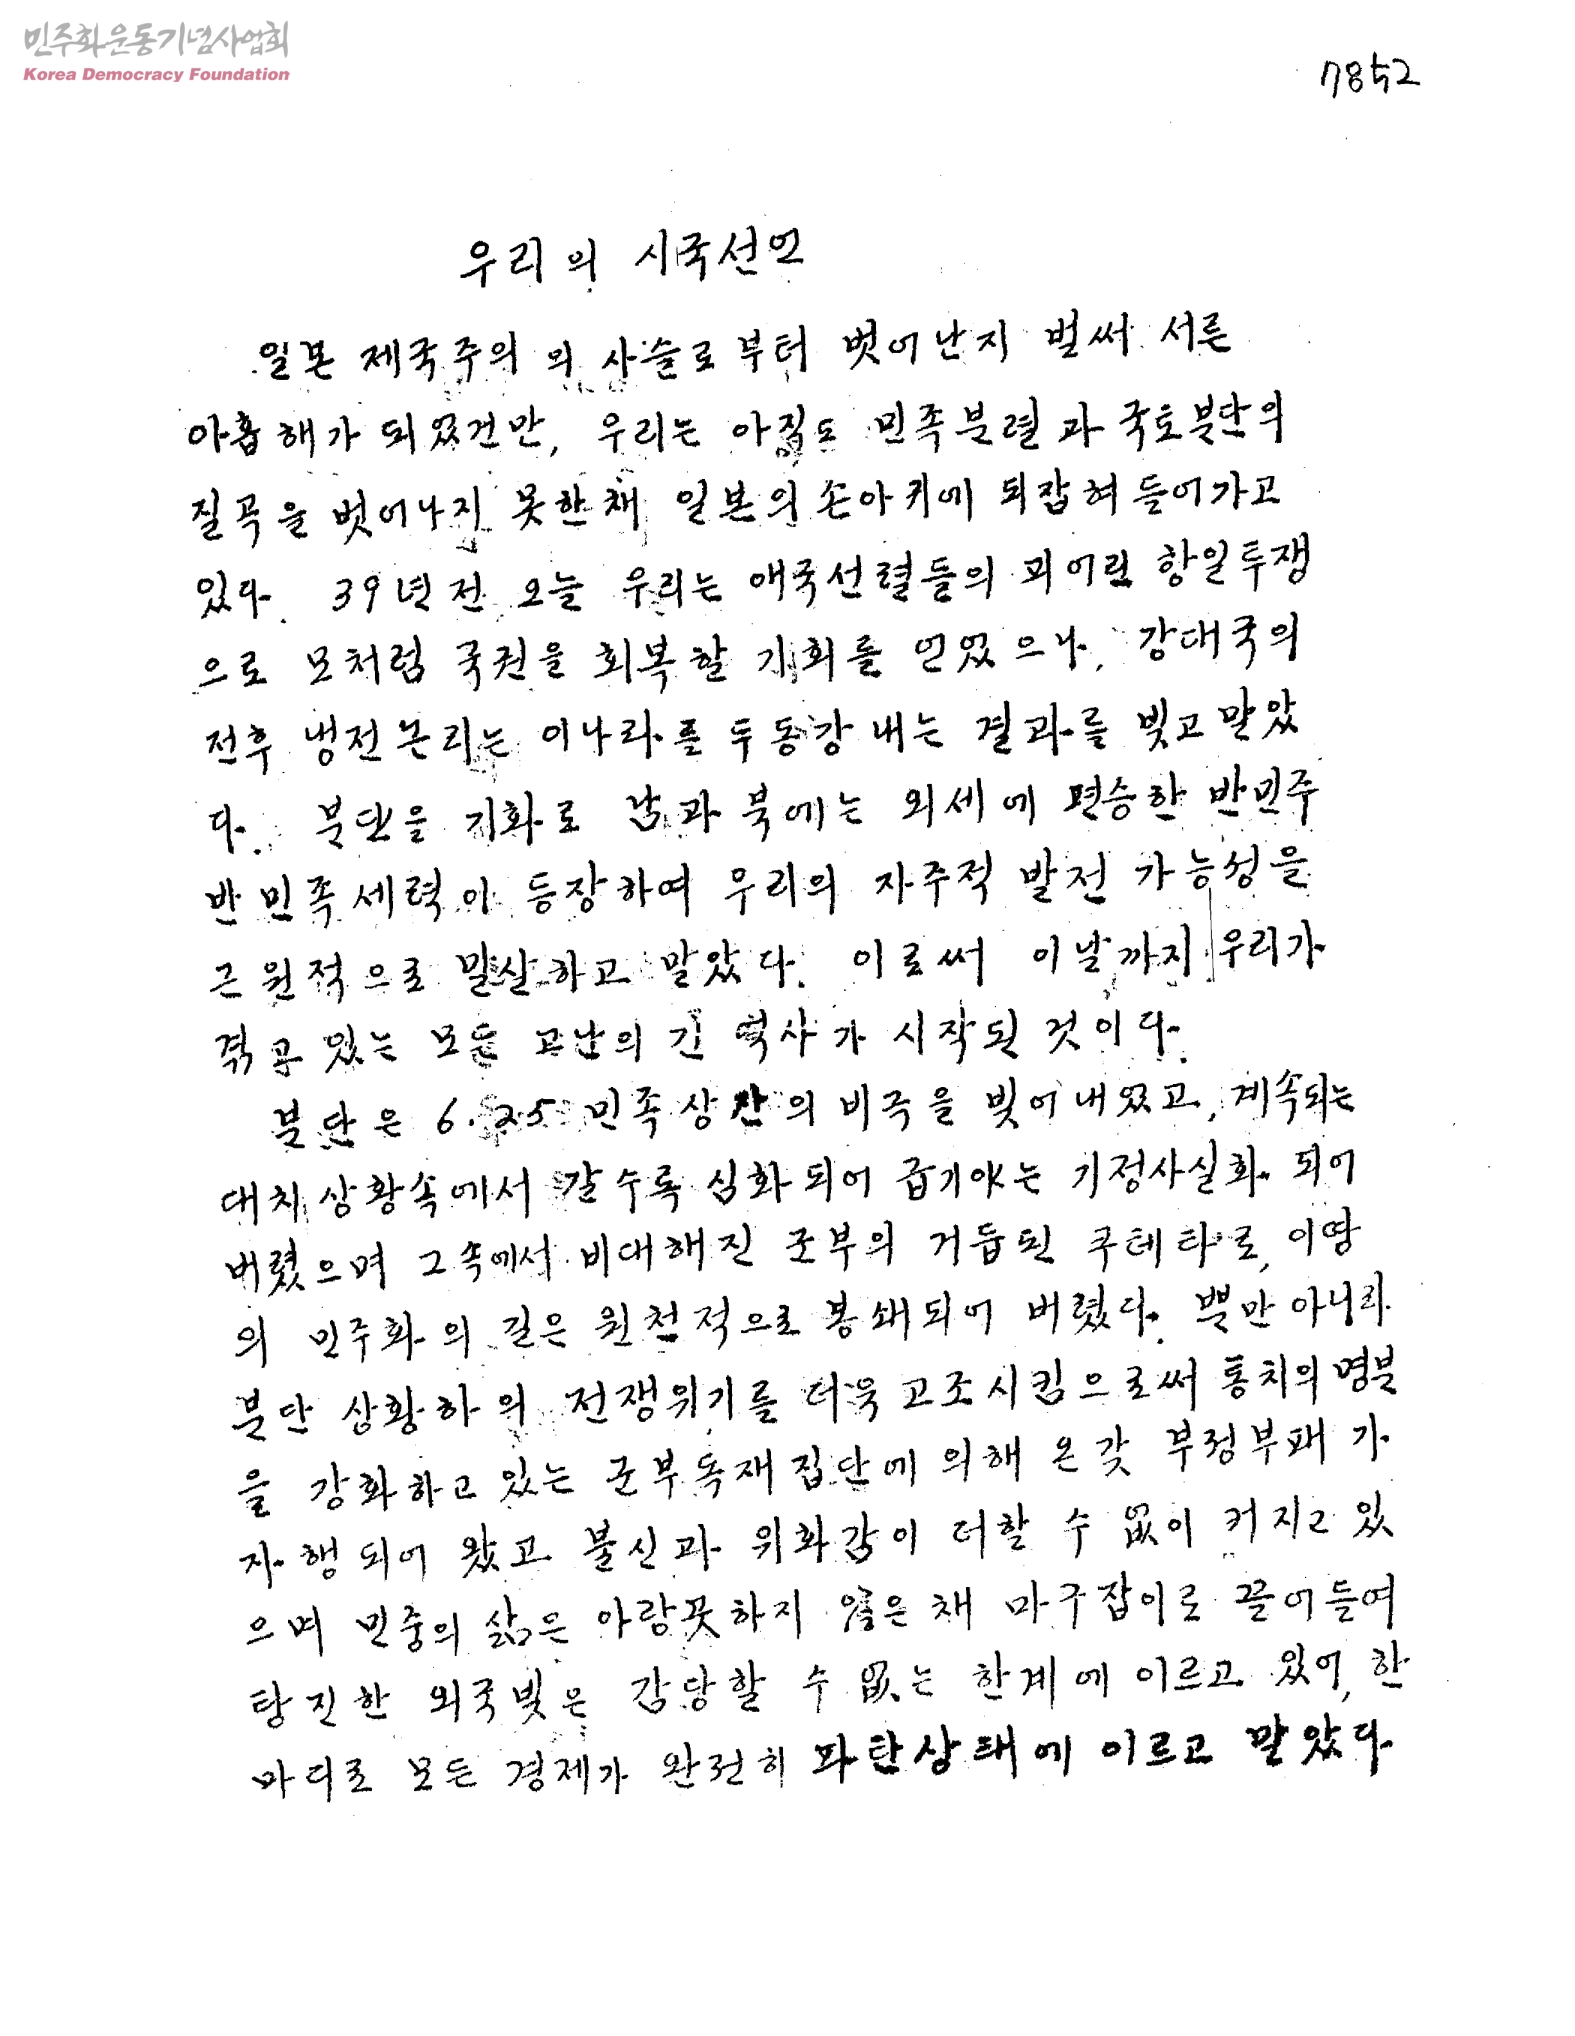 민주화운동기념사업회
Korea Democracy Foundation
우리의 시국선언
일본 제국주의의 사슬로부터 벗어난지 벌써 서른
아홉해가 되었건만, 우리는 아직도 민족분렬과 국토분단의
질곡을 벗어나지 못한채 일본의 손아귀에 되잡혀 들어가고
있다. 39년전 오늘 우리는 애국선렬들의 피어린 항일투쟁
으로 모처럼 국권을 회복할 기회를 얻었으나, 강대국의
전후 냉전논리는 이나라를 두동강 내는 결과를 빚고말았
다. 분단을 기화로 남과 북에는 외세에 편승한 반민주
반민족세력이 등장하여 우리의 자주적 발전 가능성을
근원적으로 말살하고 말았다. 이로써 이날까지 우리가
겪고 있는 모든 고난의 긴 역사가 시작된 것이다.
분단은 6.25 민족상잔의 비극을 빚어내었고, 계속되는
대치상황속에서 갈수록 심화되어 급기야는 기정사실화 되어
버렸으며 그속에서 비대해진 군부의 거듭된 쿠테타로, 이땅
의 민주화의 길은 원천적으로 봉쇄되어 버렸다. 뿐만 아니라
분단 상황하의 전쟁위기를 더욱 고조시킴으로써 통치의 명분
을 강화하고 있는 군부독재집단에 의해 온갖 부정부패가
자행되어 왔고 불신과 위화감이 더할 수 없이 커지고 있
으며 민중의 삶은 아랑곳하지 않은 채 마구잡이로 끌어들여
탕진한 외국빚은 감당할 수 없는 한계에 이르고 있어, 한
마디로 모든 경제가 완전히 파탄상태에 이르고 말았다